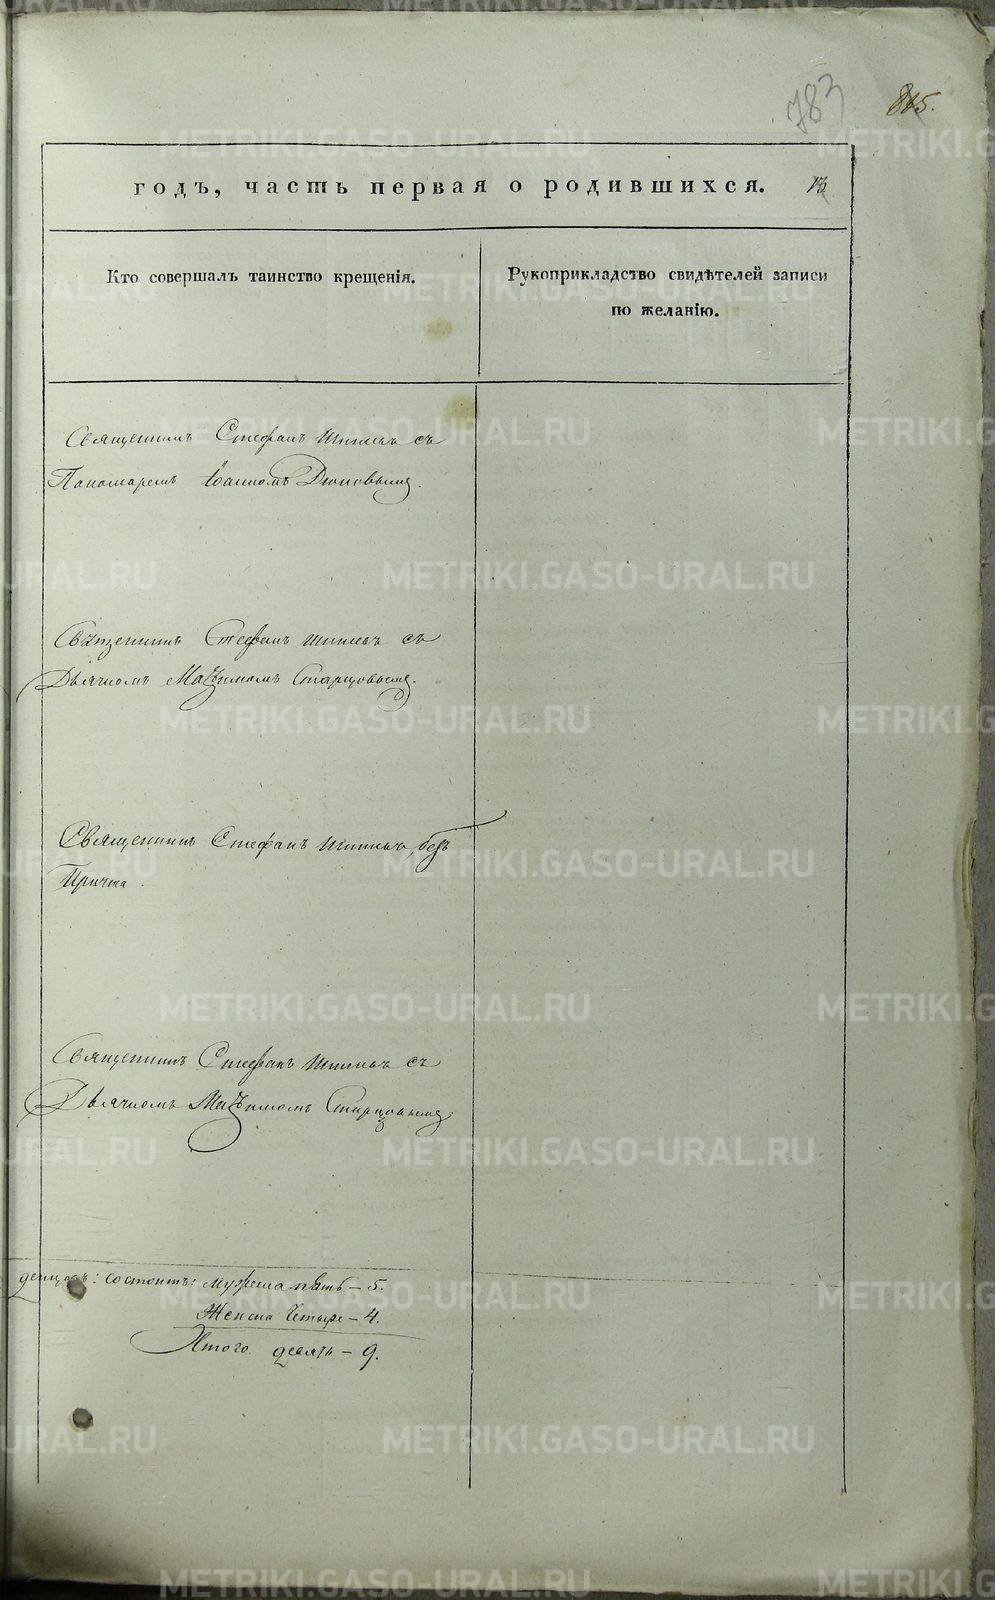 783
815.
годъ, часть первая о родившихся. 13
Кто совершалъ таинство крещенія.
Рукоприкладство свидѣтелей записи
по желанію.
Священникъ Стефанъ съ
Пономаремъ Іоанномъ
Священникъ Стефанъ съ
Дьячкомъ Старцовымъ.
Священникъ Стефанъ безъ
Причта.
Священникъ Стефанъ съ
Дьячкомъ Старцовымъ
состоитъ: мужеска пять – 5.
Женска Четыре – 4.
Итого девять – 9.
METRIKI.GASO-URAL.RU